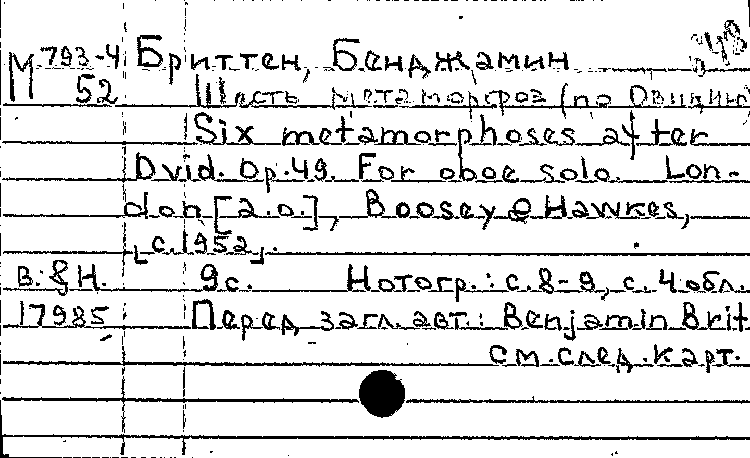 М 793-4 Бриттен, Бенджамин
52 Шесть метаморфоз (по Овидию)
Six metamorphoses after
Ovid. Op.49. For oboe solo. Lon-
don [a.o.], Boosey & Hawkes,
[c.1952].
B. & H. 9с. Нотогр.: с.8-9, с.4 обл.
17985 Перед загл. авт.: Benjamin Brit
см. след. карт.